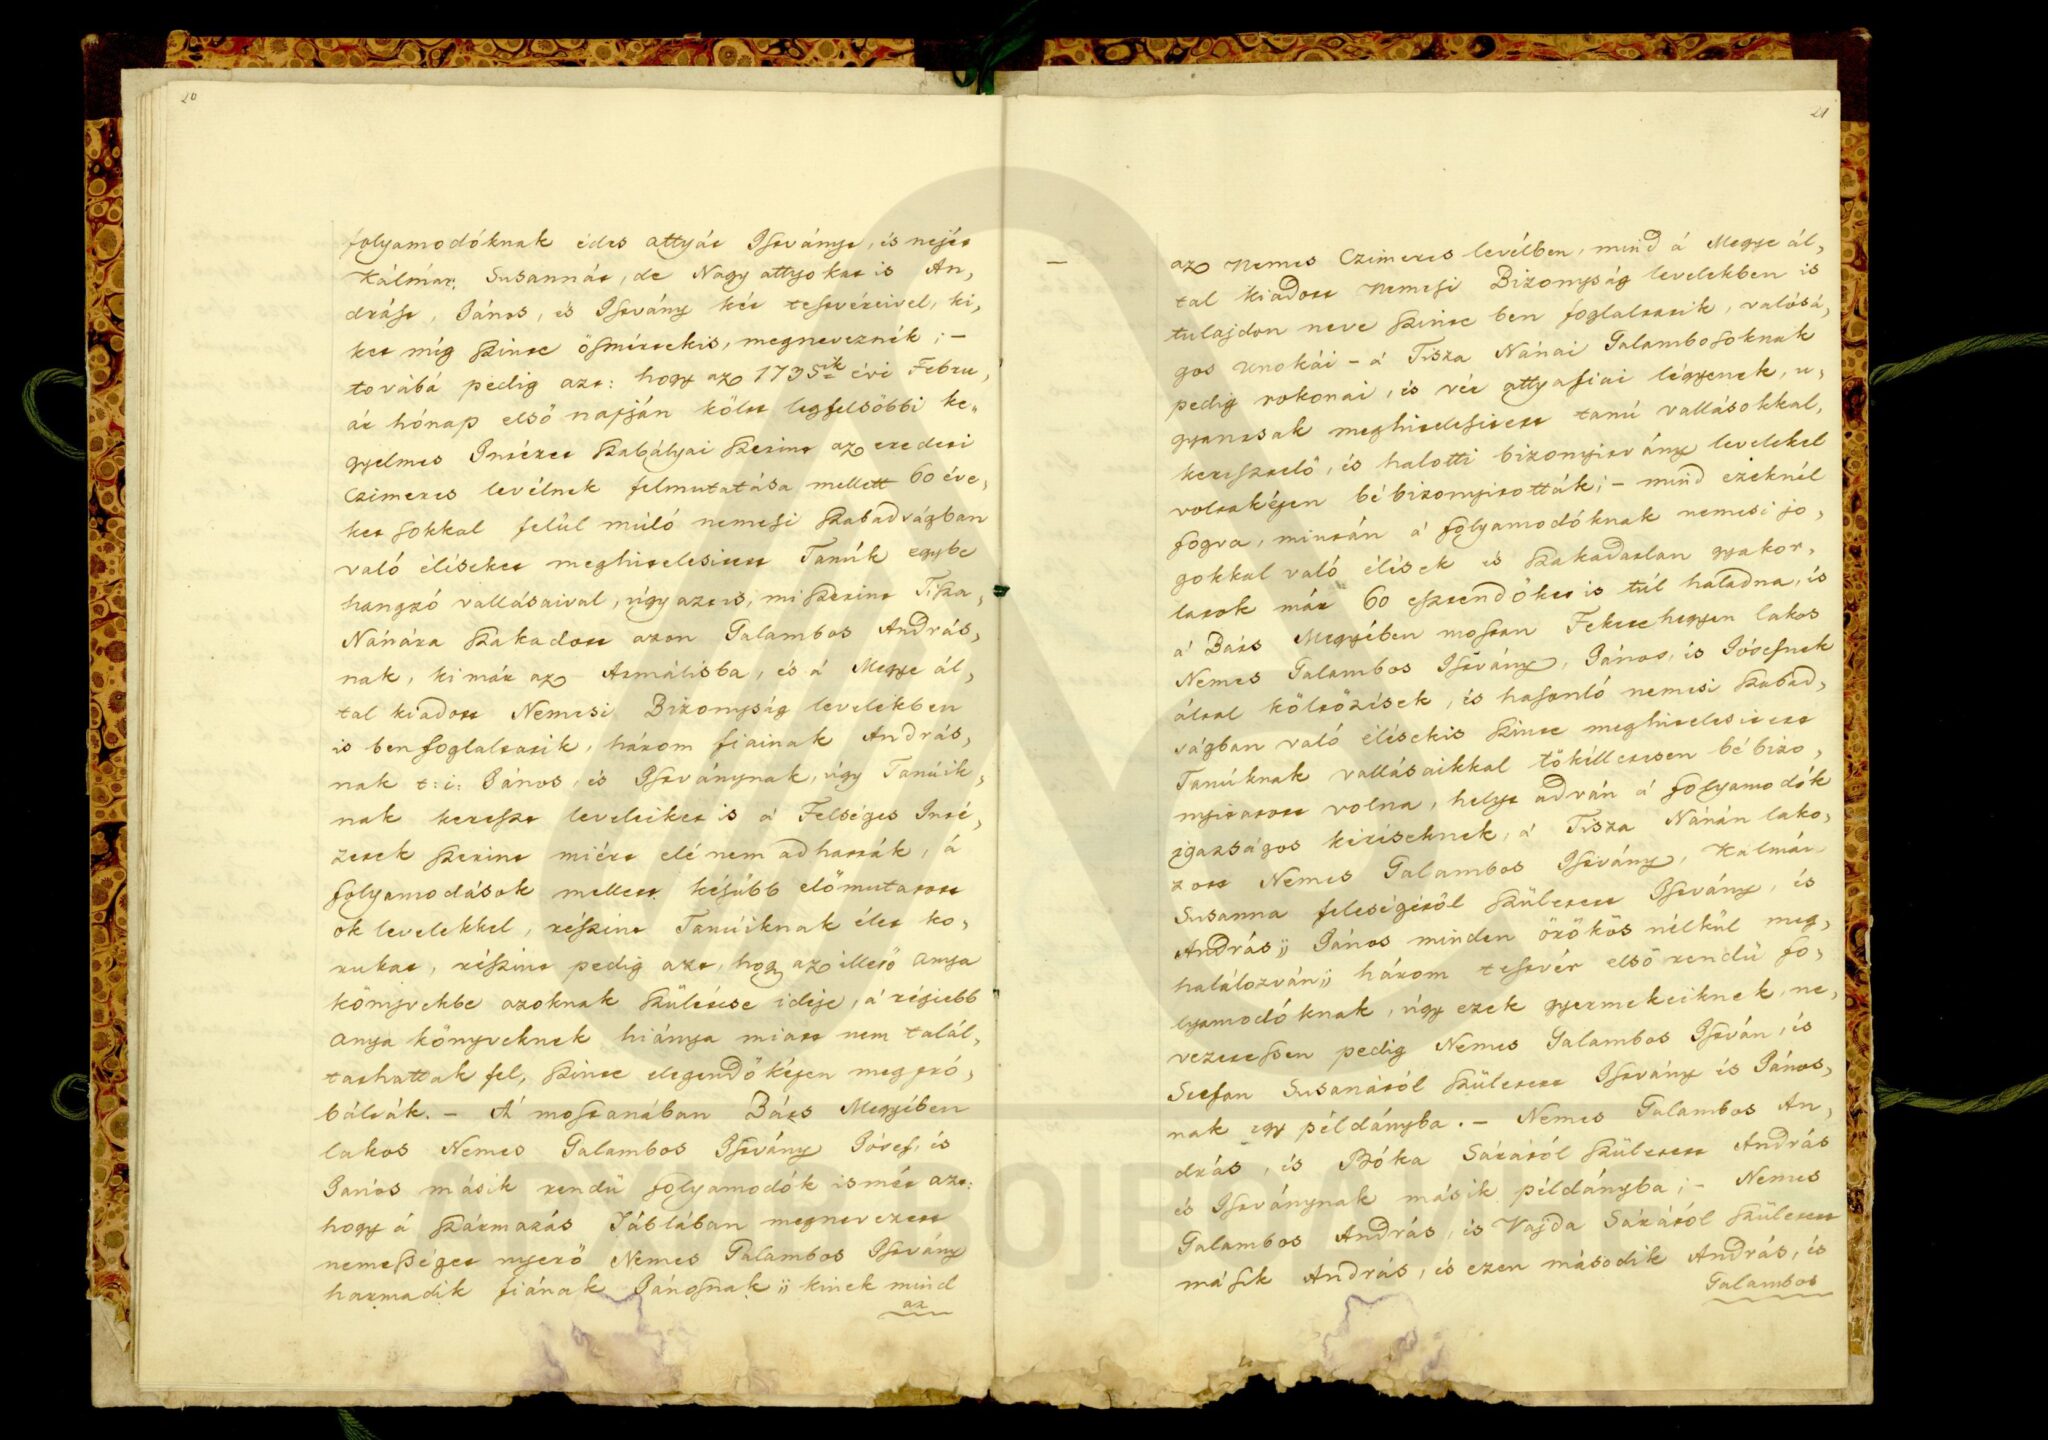 20
folyamodóknak édes attyát Istvánt, és nejét
Kálmár Susannát, de Nagy attyokat is An,
drást, János, és István két testvéreivel, ki,
ket míg szinte ösmértekis, megnevezték ; –
továbá pedig azt: hogy az 1795ik évi Febru,
ár hónap elsö napján költt legfelsöbbi ke,,
gyelmes Intézet szabályai szerint az eredeti
Czimeres levélnek felmutatása mellett 60 éve,
ket sokkal felül múló nemesi szabadságban
való éléseket meghitelesitett Tanúk egybe
hangzó vallásaival, úgy aztis, mi szerint Tisza,
Nánára szakadott azon Galambos András,
nak, ki már az Armálisba, és á Megye ál,
tal kiadott Nemesi Bizonyság levelekben
is benfoglaltatik, három fiainak András,
nak t: i: János, és Istványnak, úgy Tanúik,
nak kereszt leveleiket is á Felséges Inté,
zetek szerint miért elé nem adhatták, á
folyamodások mellett késübb elömutatott
ok levelekkel, részint Tanúiknak élet ko,
rukat, részint pedig azt, hogy az illetö anya
könyvekbe azoknak születése ideje, á régiebb
anya könyveknek hiánya miatt nem talál,
tathattak fel, szinte elegendöképen megpró,
bálták. – Á mostanában Bárs Megyében
lakos Nemes Galambos István Jósef, és
János másik rendü folyamodók ismét azt:
hogy á származás Táblában megnevezett
nemességet nyerö Nemes Galambos István
harmadik fiának Jánosnak ;; kinek mind
az
21
az nemes Czimeres levélben, mind á Megye ál,
tal kiadott nemesi Bizonyság levelekben is
tulajdon neve szinte ben foglaltatik, valósá,
gos unokái – á Tisza Nánai Galambosoknak
pedig rokonai, és vér attyafiai légyenek, u,
gyantsak meghitelesitett tanú vallásokkal,
keresztelö, és halotti bizonyitvány levelekel
voltaképen bé bizonyitották; – mind ezeknél
fogva, mintán á folyamodóknak nemesi jo,
gokkal való élések és szakadatlan gyakor,
latok már 60 esztendöket is túl haladna, és
á Bárs Megyében mostan Feketehegyen lakos
Nemes Galambos István, János, és Jósefnek
általl költözések, és hasonló nemesi szabad,
ságban való élésekis szinte meghitelesitett
Tanúknak vallásaikkal tökélletesen bé bizo,
nyitatott volna, helyt adván á folyamodók
igazságos kéréseknek, á Tisza Nánán lako,
zott Nemes Galambos István, Kalmár
Susanna feleségétöl születtett István, és
András ;; János minden örökös nélkül meg,
halálozván ;; három testvér elsö rendü fo,
lyamodóknak, úgy ezek gyermekeiknek, ne,
vezetessen pedig Nemes Galambos István, és
Stefan Susanától születtett István és János,
nak egy példányba. – Nemes Galambos An,
drás, és Bóka Sárától születtett András
és Istványnak másik példányba ; – Nemes
Galambos András, és Vajda Sárától születtett
másik András, és ezen második András, és
Galambos